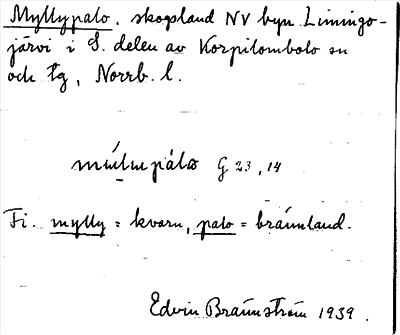 Myllypalo. skogsland NV byn Limingo-
järvi i S. delen av Korpilombolo sn
och tg, Norrb. l.
G 23, 14
Fi. mylly = kvarn, palo = bränland.
Edvin Brännström 1939.